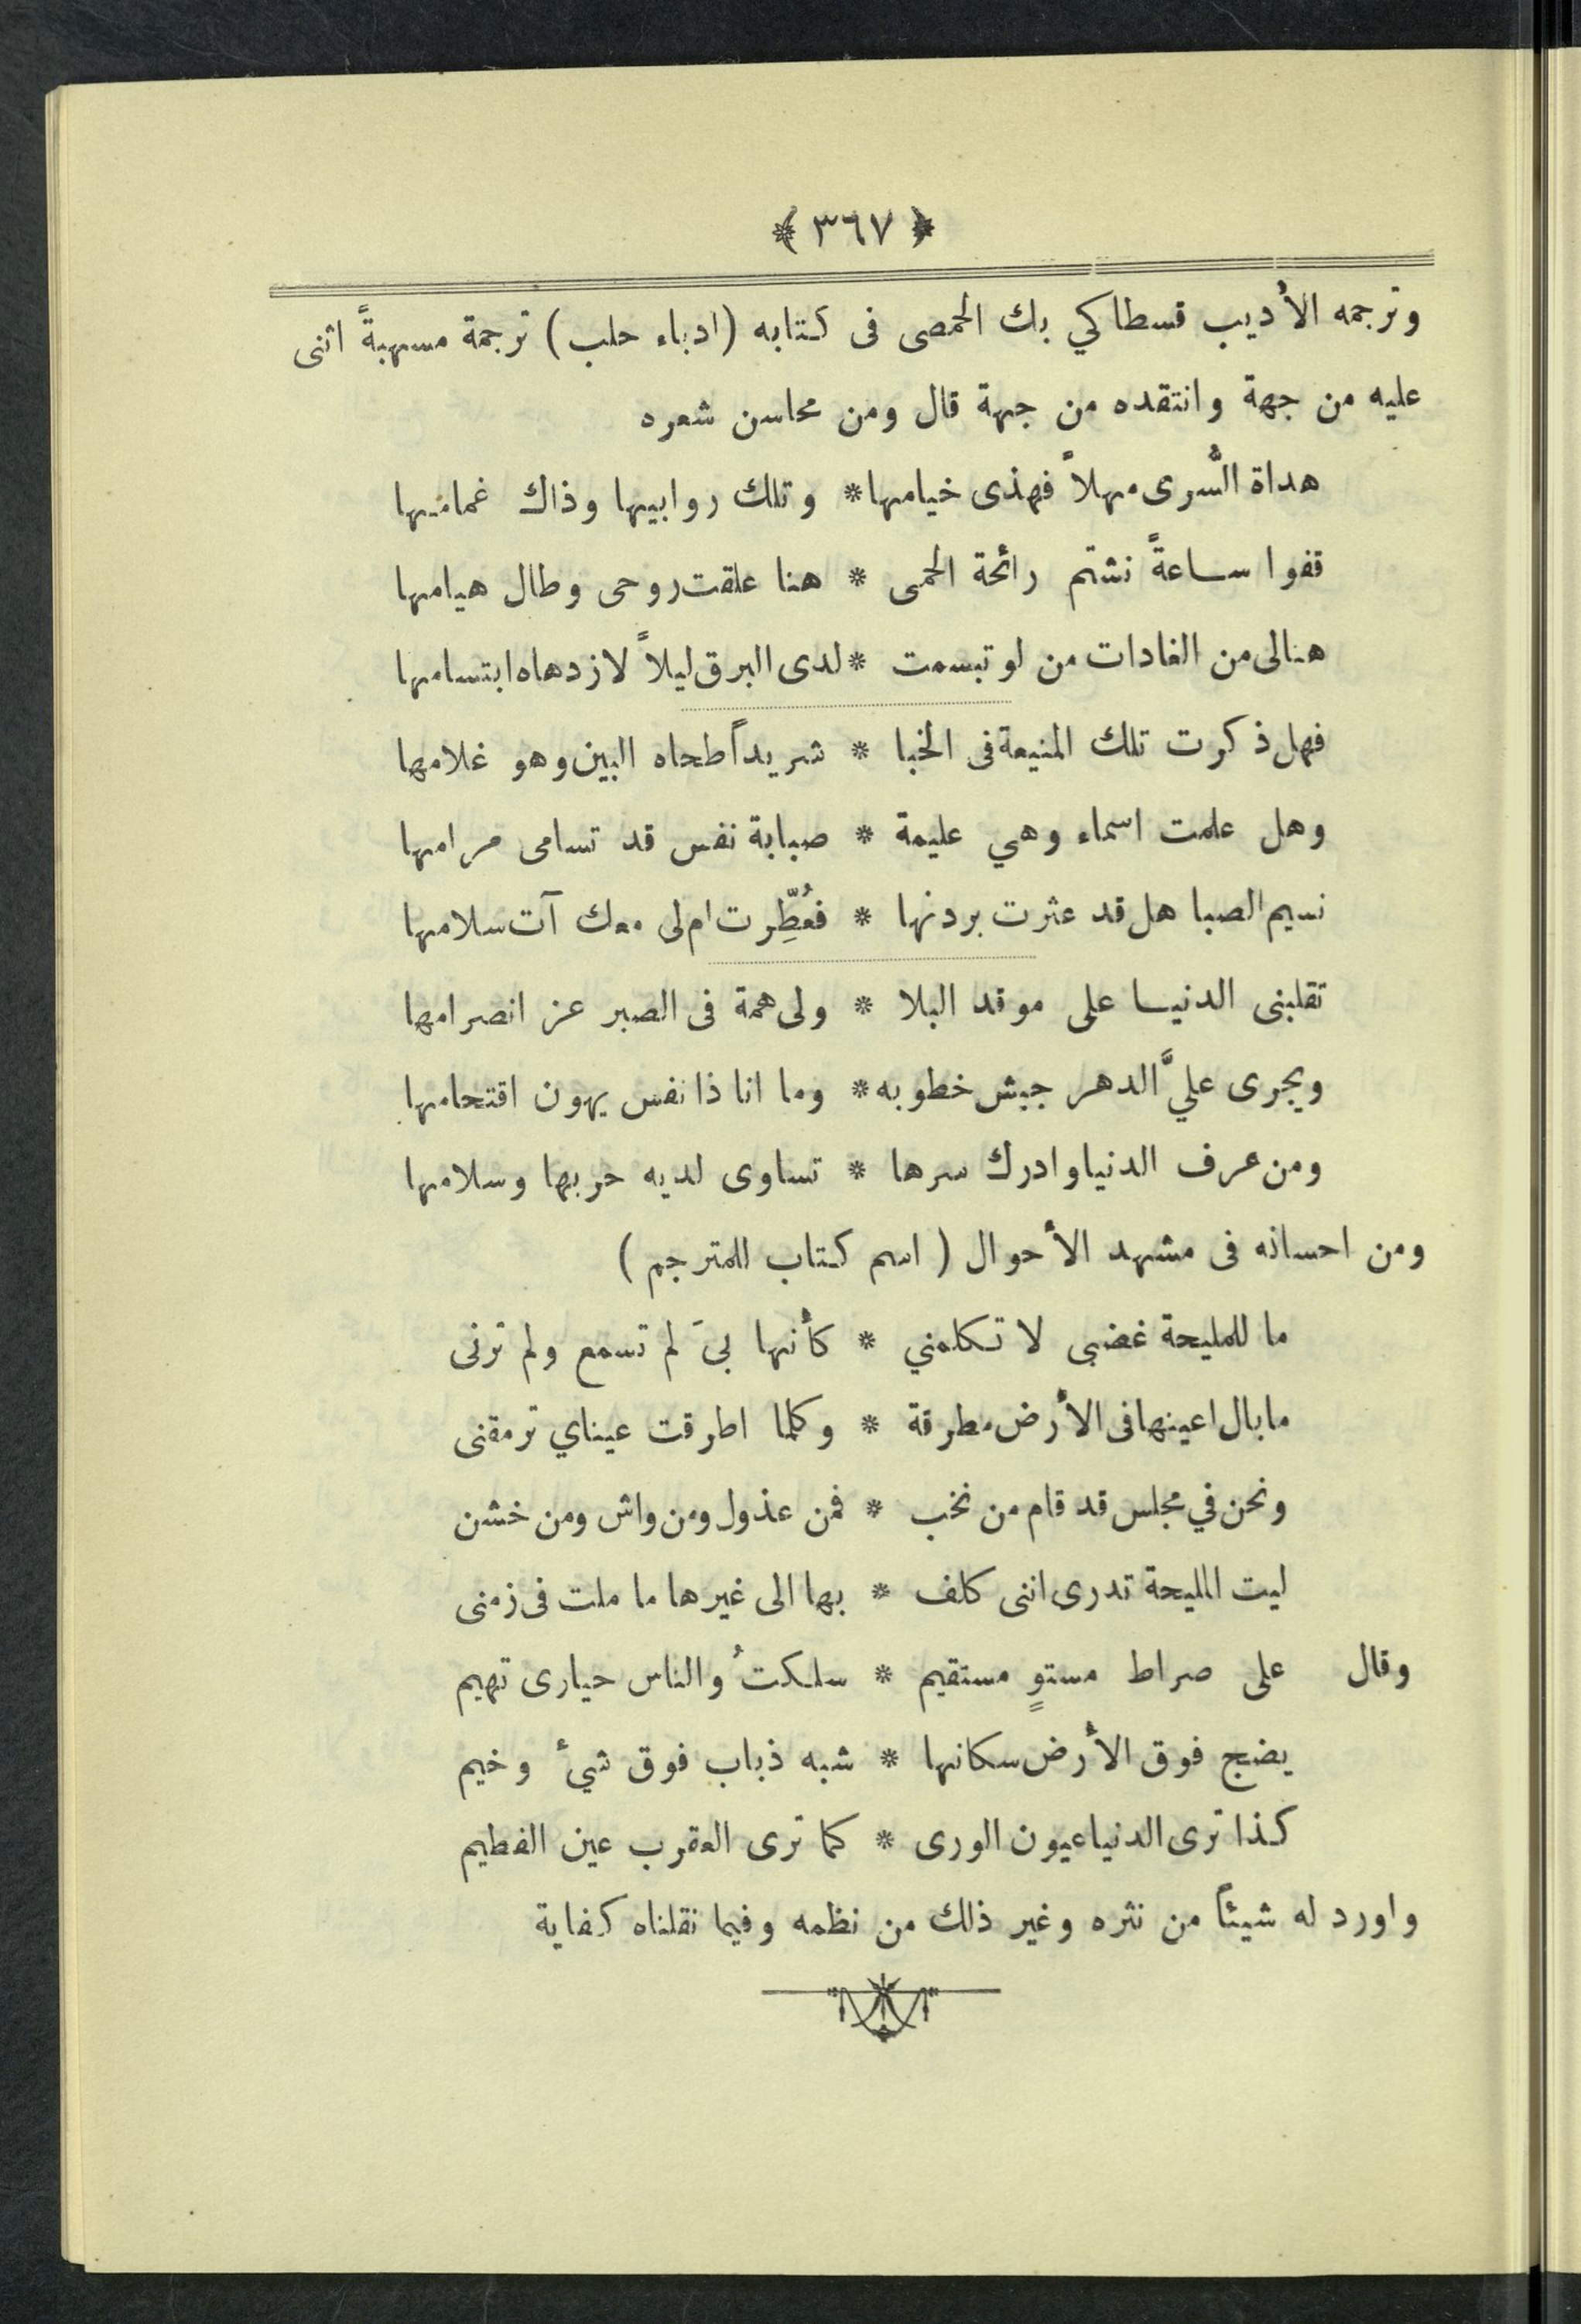 ﴿ ٣٦٧ ﴾
وترجمه الأديب قسطاكي بك الحمصى فى كتابه (ادباء حلب) ترجمة مسهبةً اثنى
عليه من جهة وانتقده من جهة قال ومن محاسن شعره
هداة السُّرى مهلاً فهذى خيامها * وتلك روابيها وذاك غمامها
قفوا ساعةً نشتم رائحة الحمى * هنا علقت روحى وطال هيامها
هنالى من الغادات من لو تبسمت * لدى البرق ليلاً لازدهاه ابتسامها
فهل ذكرت تلك المنيعة فى الخبا * شريداً طحاه البين وهو غلامها
وهل علمت اسماء وهي عليمة * صبابة نفس قد تسامى مرامها
نسيم الصبا هل قد عثرت بردنها * فعُطِّرت ام لى معك آت سلامها
تقلبنى الدنيا على موقد البلا * ولى همة فى الصبر عز انصرامها
ويجرى عليَّ الدهر جيش خطوبه * وما انا ذا نفس يهون اقتحامها
ومن عرف الدنيا وادرك سرها * تساوى لديه حربها وسلامها
ومن احسانه فى مشهد الأحوال ( اسم كتاب للمترجم )
ما للمليحة غضبى لا تكلمني * كأنها بىَ لم تسمع ولم ترنى
مابال اعينها فى الأرض مطرقة * وكلما اطرقت عيناي ترمقنى
ونحن في مجلس قد قام من نخب * فمن عذول ومن واش ومن خشن
ليت المليحة تدرى اننى كلف * بها الى غيرها ما ملت فى زمنى
وقال على صراط مستوٍ مستقيم * سلكتُ والناس حيارى تهيم
يضج فوق الأرض سكانها * شبه ذباب فوق شيء وخيم
كذا ترى الدنيا عيون الورى * كما ترى العقرب عين الفطيم
واورد له شيئاً من نثره وغير ذلك من نظمه وفيما نقلناه كفاية